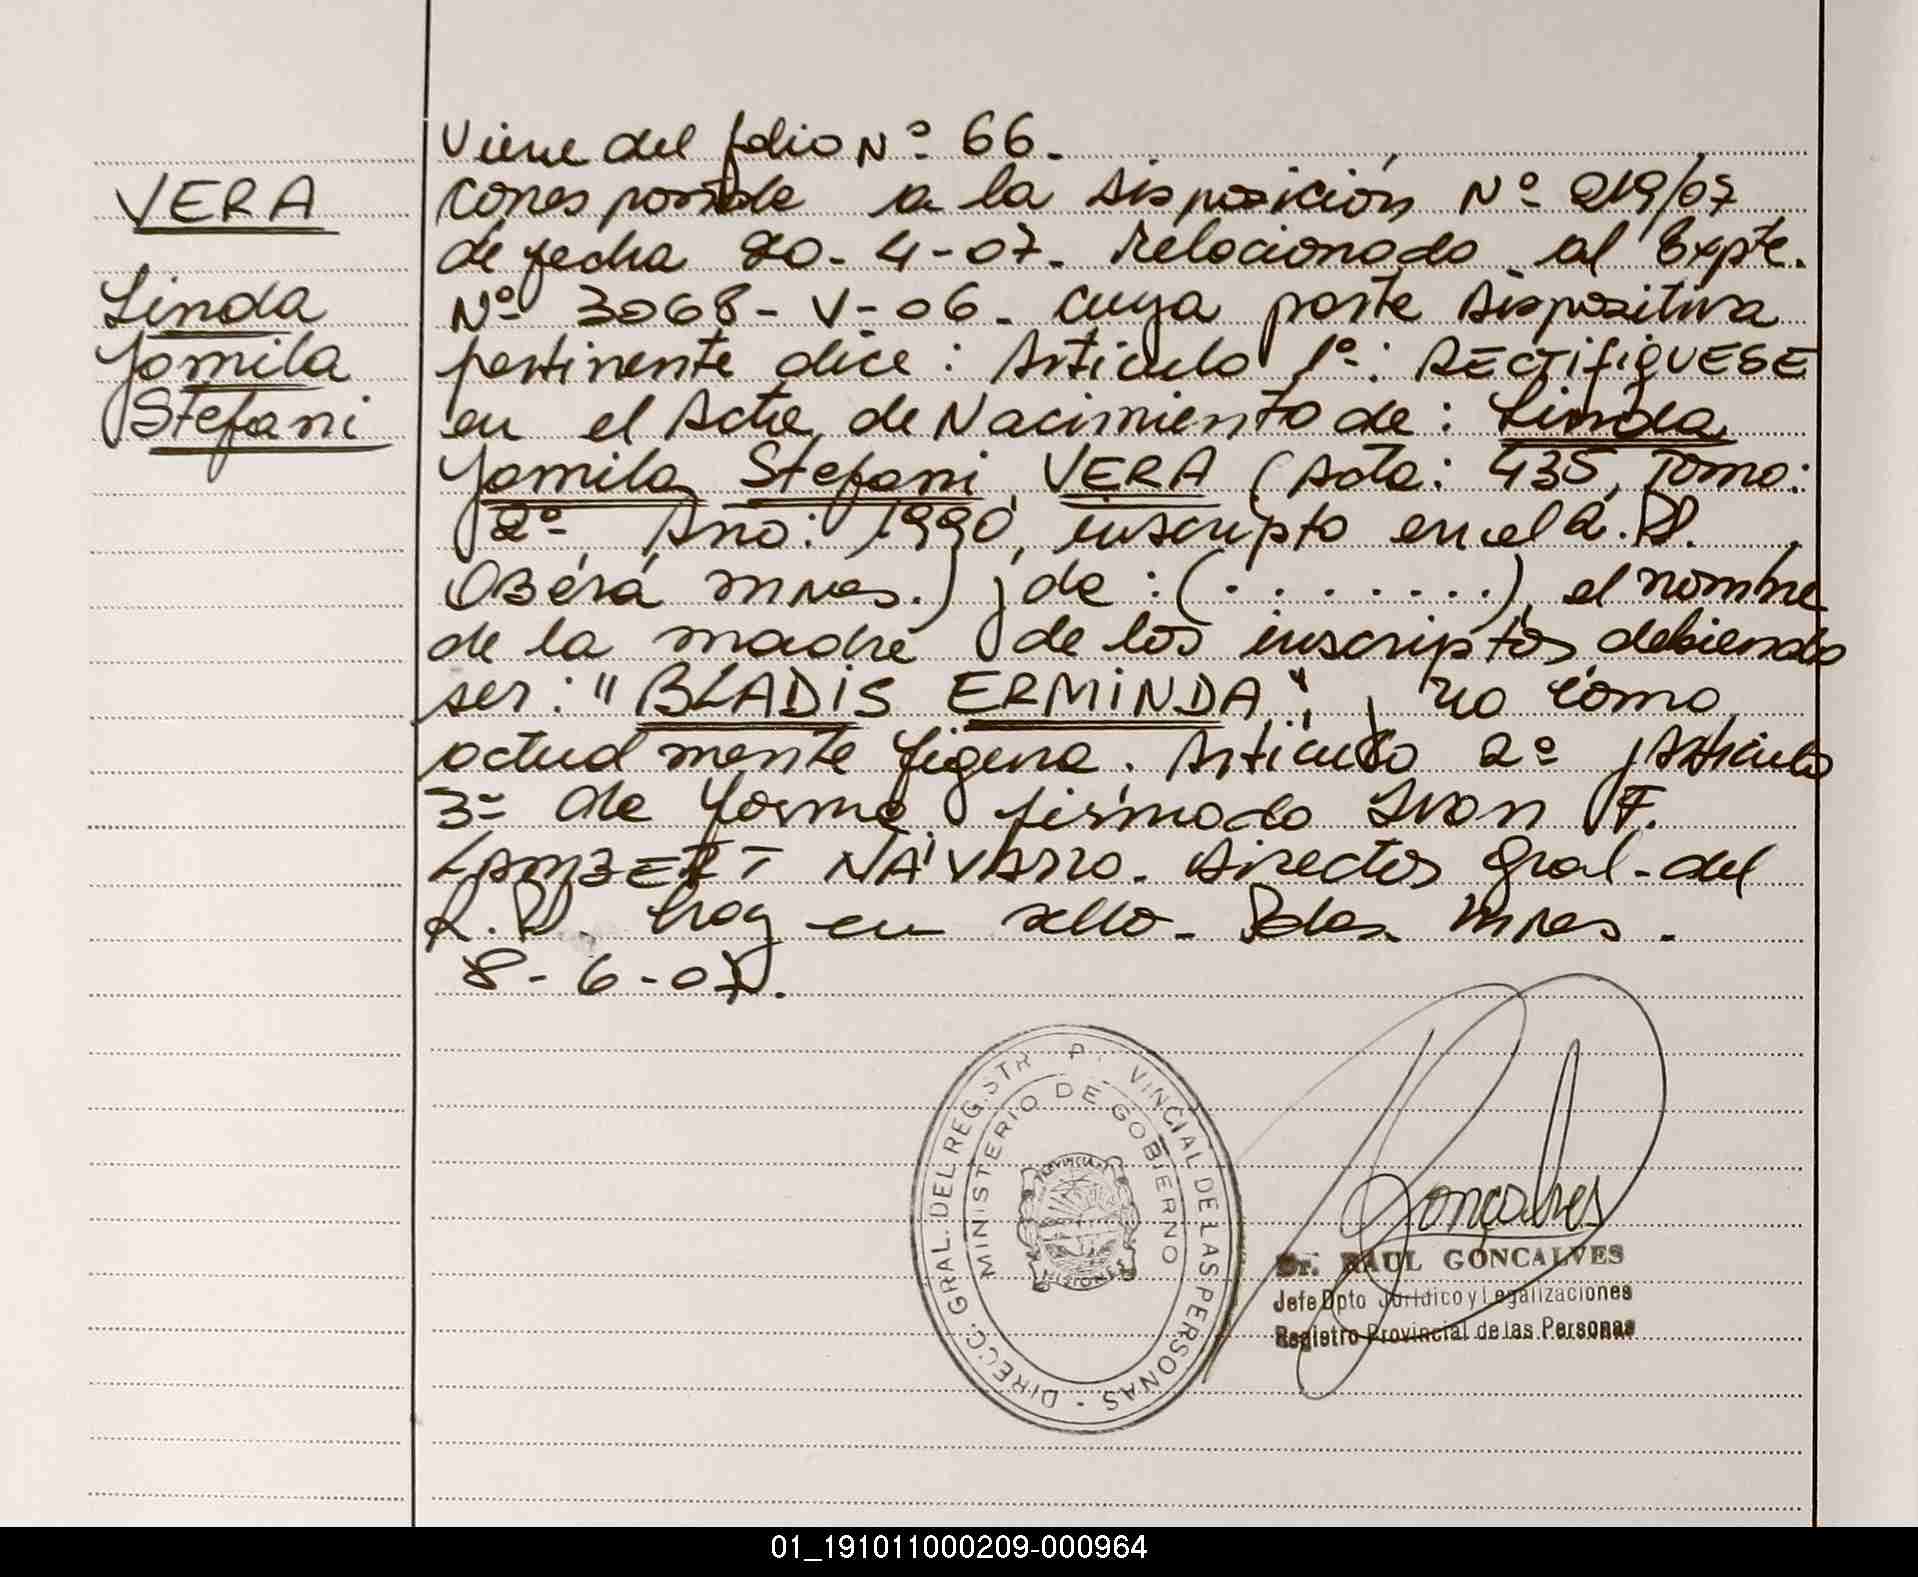 Viene del folio Nº 66.
VERA
Corresponde a la Disposición Nº 219/07
de fecha 20-4-07. Relacionado al Expte.
Linda
Nº 3068-V-06. cuya parte dispositiva
Jamila
pertinente dice: Articulo 1º: RECTIFIQUESE
Stefani
en el Acta de Nacimiento de: Linda
Jamila Stefani VERA (Acta: 435, Tomo:
2º Año: 1990, inscripto en el R.P.
OBerá Mnes.) y de: (. . . . . . . .) el nombre
de la madre de los inscriptos debiendo
ser: "BLADIS ERMINDA", y no como
actualmente figura. Articulo 2º y Articulo
3º de forma, firmado Ivan F.
LAMBERT NAVARRO. Director Gral. del
R.P. hay un sello. Pdas. Mnes.
8-6-07.
DIRECC. GRAL. DEL REG.STR P. VINCIAL DE LAS PERSONAS -
MINISTERIO DE GOBIERNO
PROVINCIA
MISIONES
Goncalves
Dr. RAUL GONCALVES
Jefe Dpto Juridico y Legalizaciones
Registro Provincial de las Personas
01_191011000209-000964